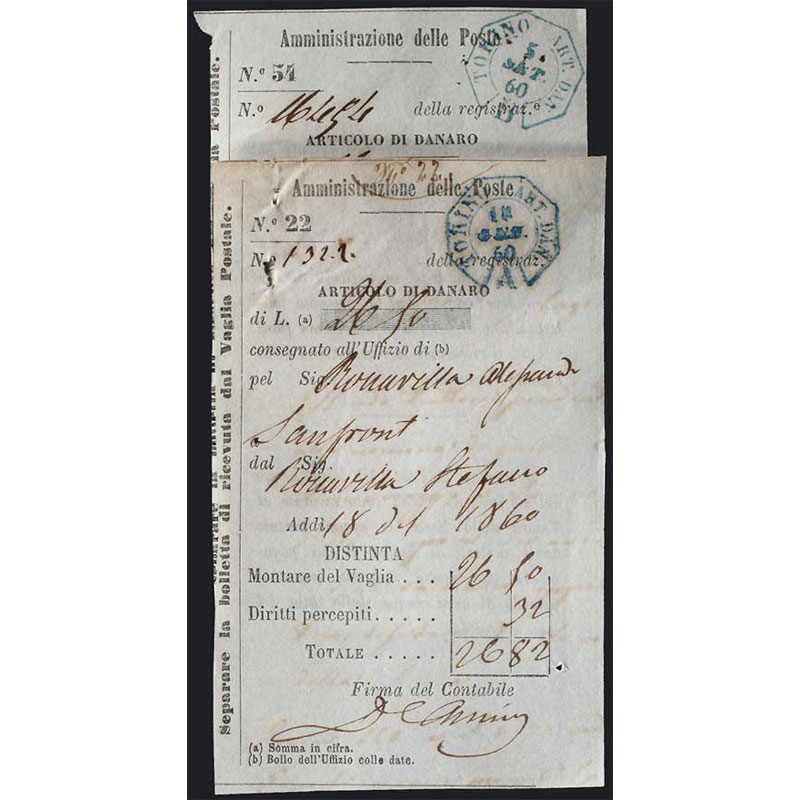 Amministrazione delle Poste
N.° 54
N.° della registraz.e
ARTICOLO DI DANARO
TORINO ART. DAN.
5
SET.
60
N.° 22
Amministrazione delle Poste
N.° 22
N.° 1322 della registraz.e
ARTICOLO DI DANARO
TORINO ART. DAN.
18
60
A
di L. (a) 26 50
consegnato all'Uffizio di (b)
pel Sig.
a Sanfront
dal Sig. Stefano
Addì 18 1860
DISTINTA
Montare del Vaglia . . . 26 50
Diritti percepiti . . . . 32
TOTALE . . . . . 26 82
Firma del Contabile
(a) Somma in cifra.
(b) Bollo dell'Uffizio colle date.
Separare la bolletta di ricevuta dal Vaglia Postale.